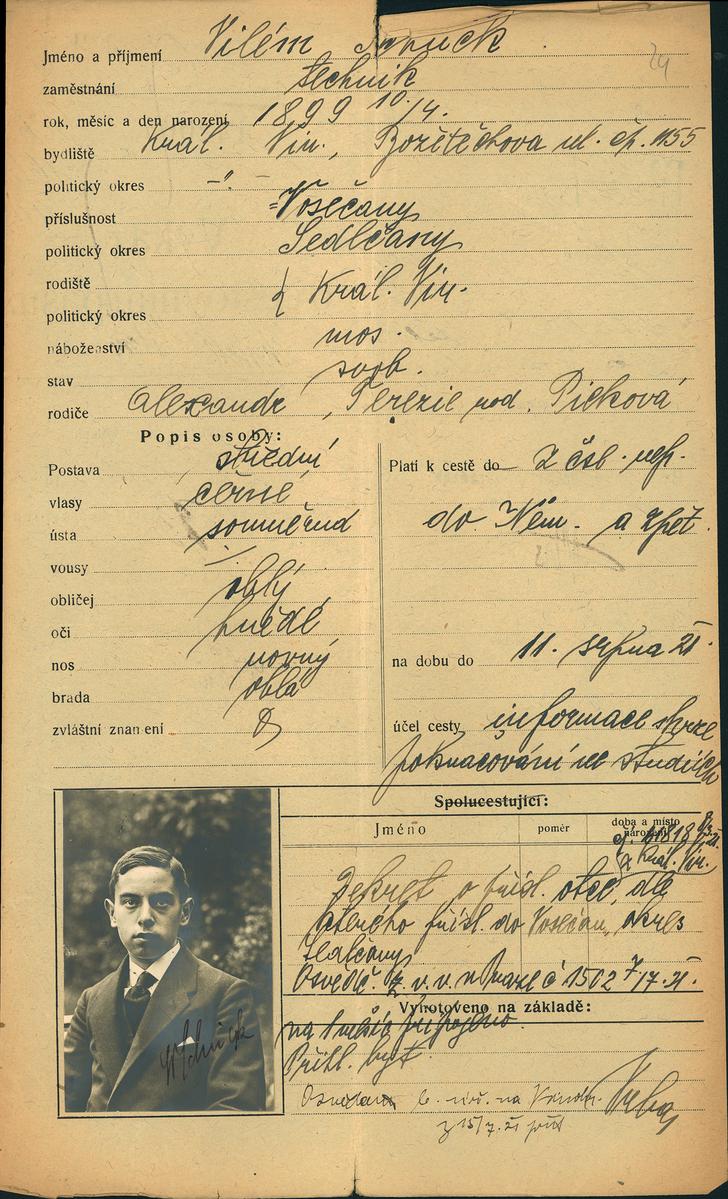 Jméno a příjmení Vilém
24
zaměstnání technik
rok, měsíc a den narození 1899 10/4.
bydliště Král. Vin., Božetěchova ul. čp. 1155
politický okres –".–
příslušnost Vosečany
politický okres Sedlčany
rodiště } Král. Vin.
politický okres
náboženství mos.
stav svob.
rodiče Alexandr, Terezie rod. Picková
Popis osoby:
Postava střední
vlasy černé
ústa souměrná
vousy /
obličej oblý
oči hnědé
nos rovný
brada oblá
zvláštní znamení
Platí k cestě do Z čsl. rep.
do Něm. a zpět
na dobu do 11. srpna 21
účel cesty informace skrze
pokračování ve studiích
Spolucestující:
Jméno poměr doba a místo narození
Král. Vin.
Dekret o přísl. otce, dle
kterého přísl. do Vosečan, okres
Sedlčany
Osvědč. z. v. v. v Praze č 1502 7/17. 21.
Vyhotoveno na základě:
na 1 měsíc
Přihl. byt.
15/7. 21